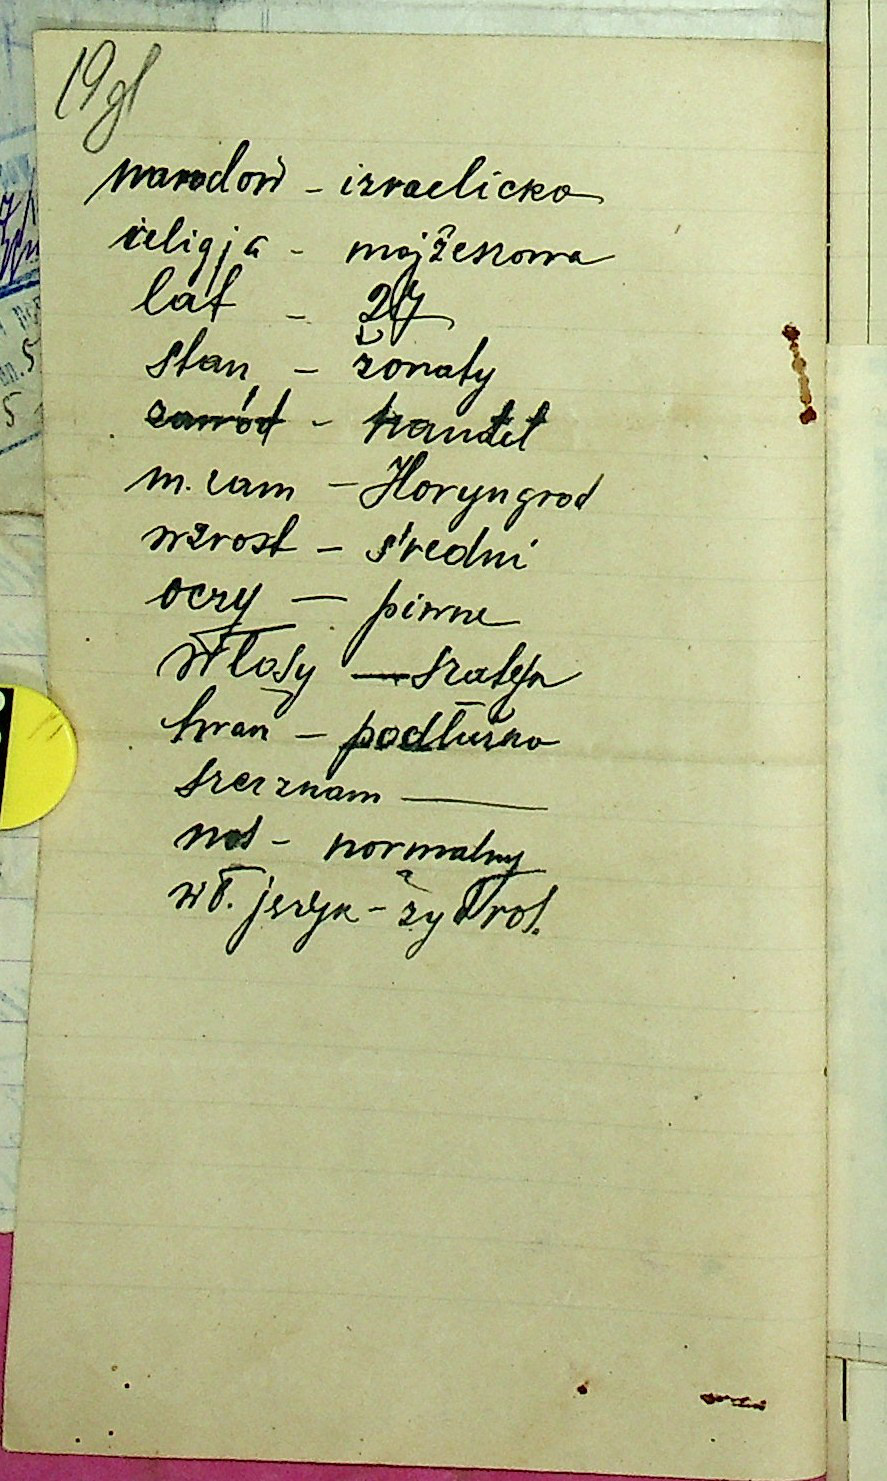 19
narodow - izraelicka
religja - mojżeszowa
lat - 27
stan - żonaty
zawód - handel
m. zam - Horyngrod
wzrost - średni
oczy - piwne
włosy - szatyn
twarz - podłużna
szcz znam -
nos - normalny
wł. język - żyd ros.